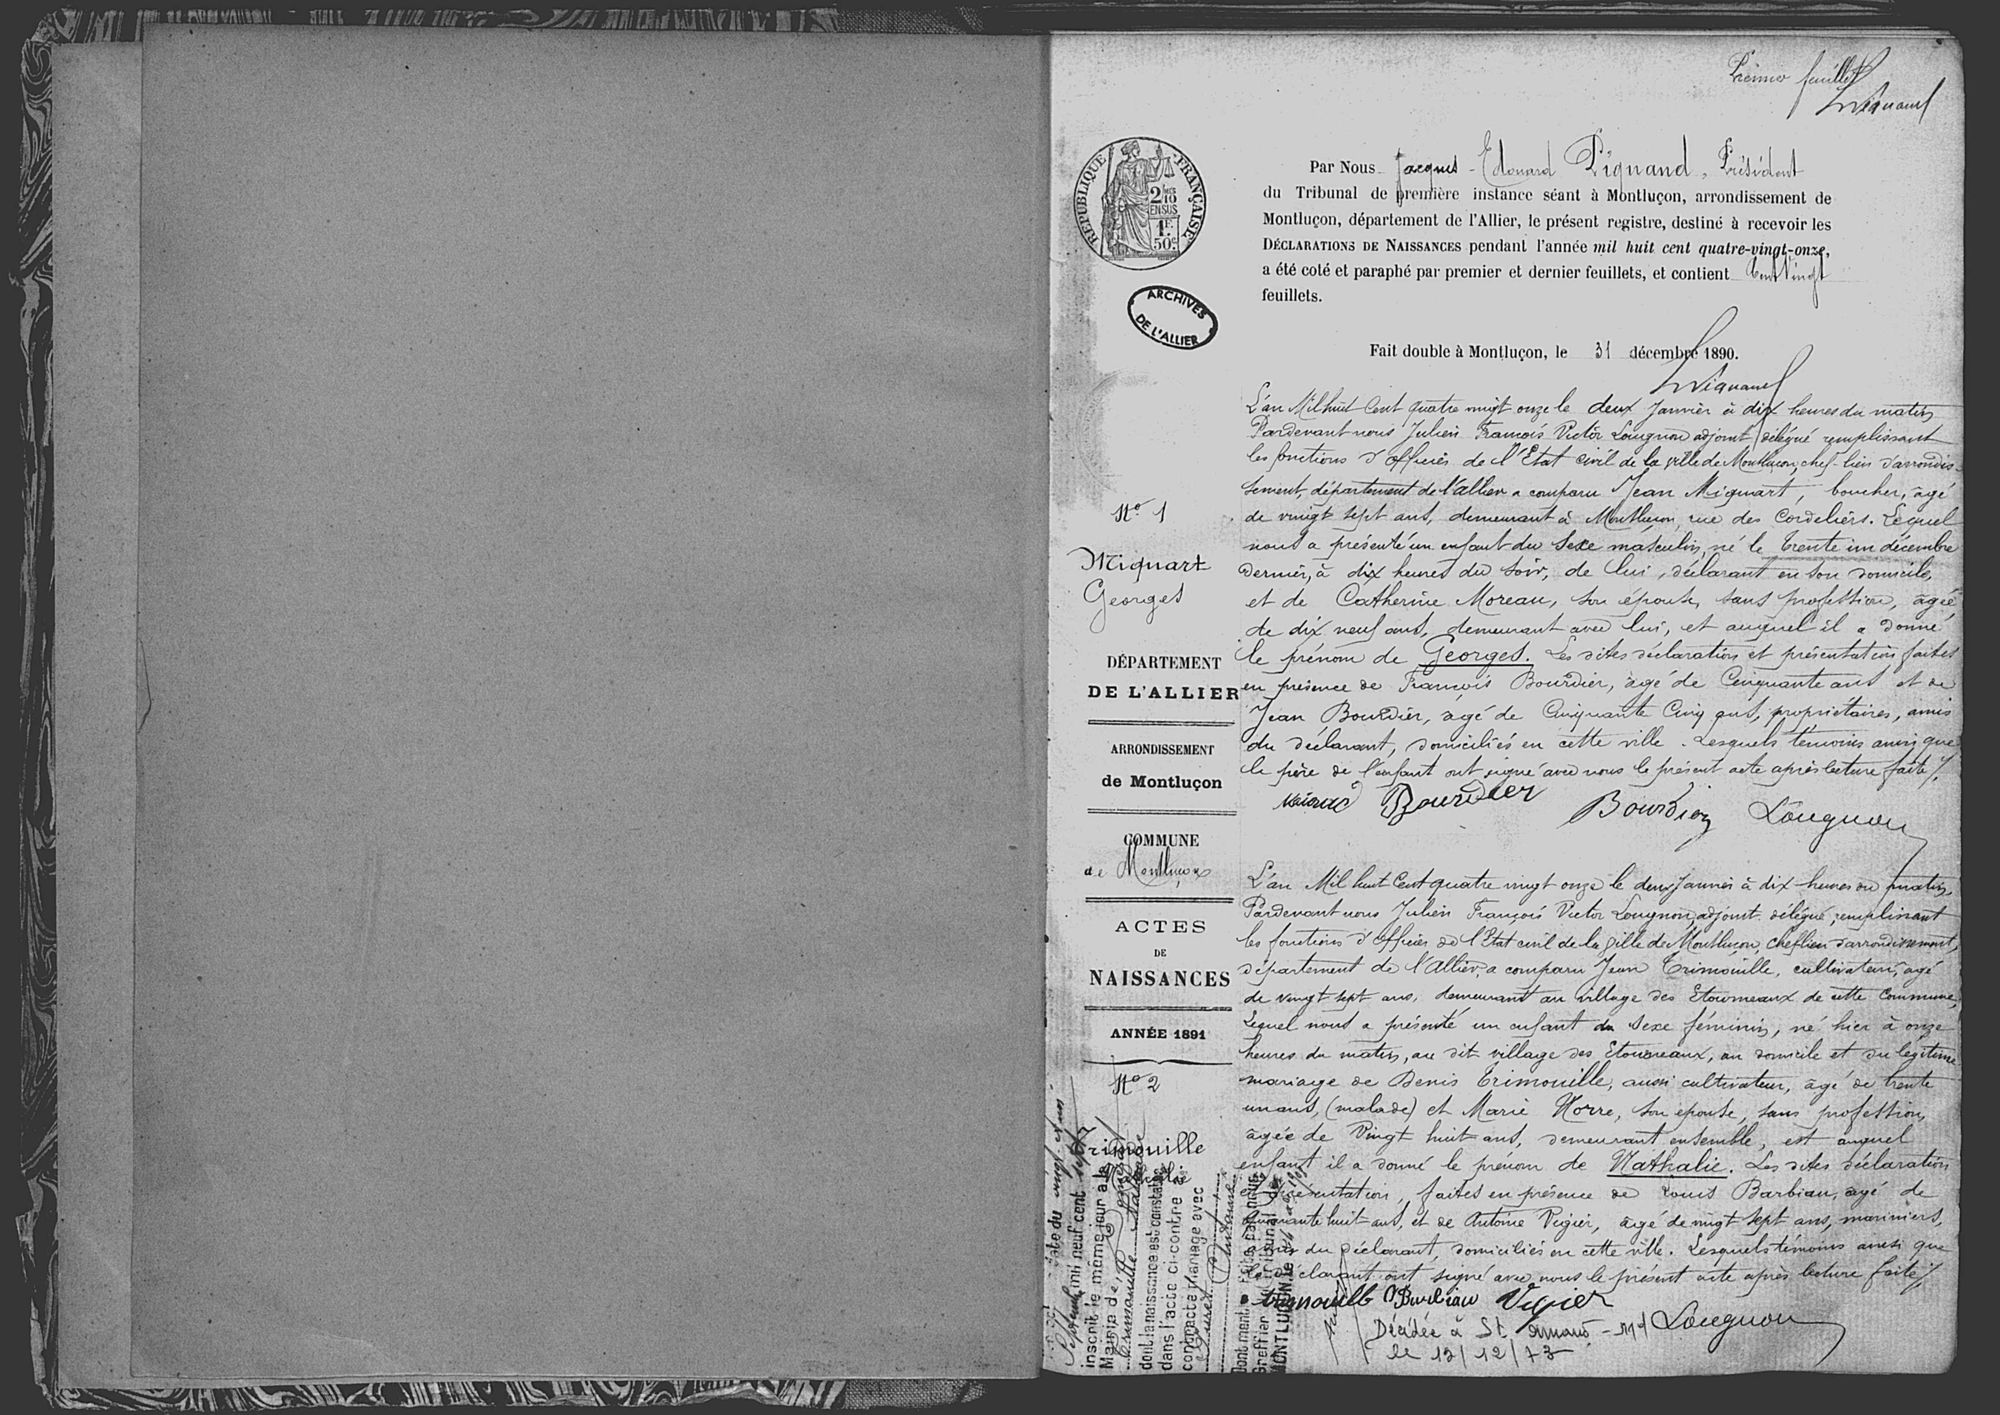 Premier feuillet
RÉPUBLIQUE FRANÇAISE
2/10
EN SUS
1F
50c
ARCHIVES
DE L'ALLIER
Par Nous Jacques Edouard Pignand, Président
du Tribunal de première instance séant à Montluçon, arrondissement de
Montluçon, département de l'Allier, le présent registre, destiné à recevoir les
DÉCLARATIONS DE NAISSANCES pendant l'année mil huit cent quatre-vingt-onze,
a été coté et paraphé par premier et dernier feuillets, et contient Cent Vingt
feuillets.
Fait double à Montluçon, le 31 décembre 1890.
L'an Mil huit Cent quatre vingt onze le deux Janvier à dix heures du matin
Pardevant nous Julien François Victor Lougnon adjoint délégué remplissant
les fonctions d'officier de l'Etat civil de la ville de Montluçon, chef-lieu d'arrondis-
sement, département de l'allier a comparu Jean Miquart, boucher, âgé
de vingt sept ans, demeurant à Montluçon, rue des Cordeliers. Lequel
nous a présenté un enfant du sexe masculin, né le trente un décembre
dernier, à dix heures du soir, de lui, déclarant en son domicile,
et de Catherine Moreau, son épouse, sans profession, âgée
de dix neuf ans, demeurant avec lui, et auquel il a donné
le prénom de Georges. Les dites déclaration et présentation faites
en présence de François Bourdier, âgé de Cinquante ans et de
Jean Bourdier, âgé de Cinquante Cinq ans, propriétaires, amis
du déclarant, domiciliés en cette ville. Lesquels témoins ainsi que
le père de l'enfant ont signé avec nous le présent acte après lecture faite.
Bourdier Bourdier Lougnon
No 1
Miquart
Georges
DÉPARTEMENT
DE L'ALLIER
ARRONDISSEMENT
de Montluçon
COMMUNE
de Montluçon
ACTES
DE
NAISSANCES
ANNÉE 1891
No 2
Trimouille
Nathalie
L'an Mil huit Cent quatre vingt onze le deux Janvier à dix heures du matin,
Pardevant nous Julien François Victor Lougnon, adjoint délégué, remplissant
les fonctions d'officier de l'Etat civil de la ville de Montluçon, chef lieu d'arrondissement,
département de l'Allier, a comparu Jean Trimouille, cultivateur, âgé
de vingt sept ans, demeurant au village des Etourneaux de cette commune,
Lequel nous a présenté un enfant du sexe féminin, né hier à onze
heures du matin, au dit village des Etourneaux, au domicile et du légitime
mariage de Denis Trimouille, aussi cultivateur, âgé de trente
un ans, (malade) et Marie Norre, son épouse, sans profession,
âgée de Vingt huit ans, demeurant ensemble, et auquel
enfant il a donné le prénom de Nathalie. Les dites déclaration
et présentation, faites en présence de Louis Barbiau, âgé de
huit ans, et de Antoine Vigier, âgé de vingt sept ans, mariniers,
amis du déclarant, domiciliés en cette ville. Lesquels témoins ainsi que
le déclarant ont signé avec nous le présent acte après lecture faite
Trimouille Barbiau Vigier
Lougnon
Décédée à St Amand-Md
le 13/12/73
mil neuf cent
inscrit le même jour à la
Mairie d
Trimouille Nathalie
dont la naissance est constatée
dans l'acte ci-contre a
contracté Mariage avec
Dont mention faite par nous
Greffier du tribunal de
MONTLUÇON, le